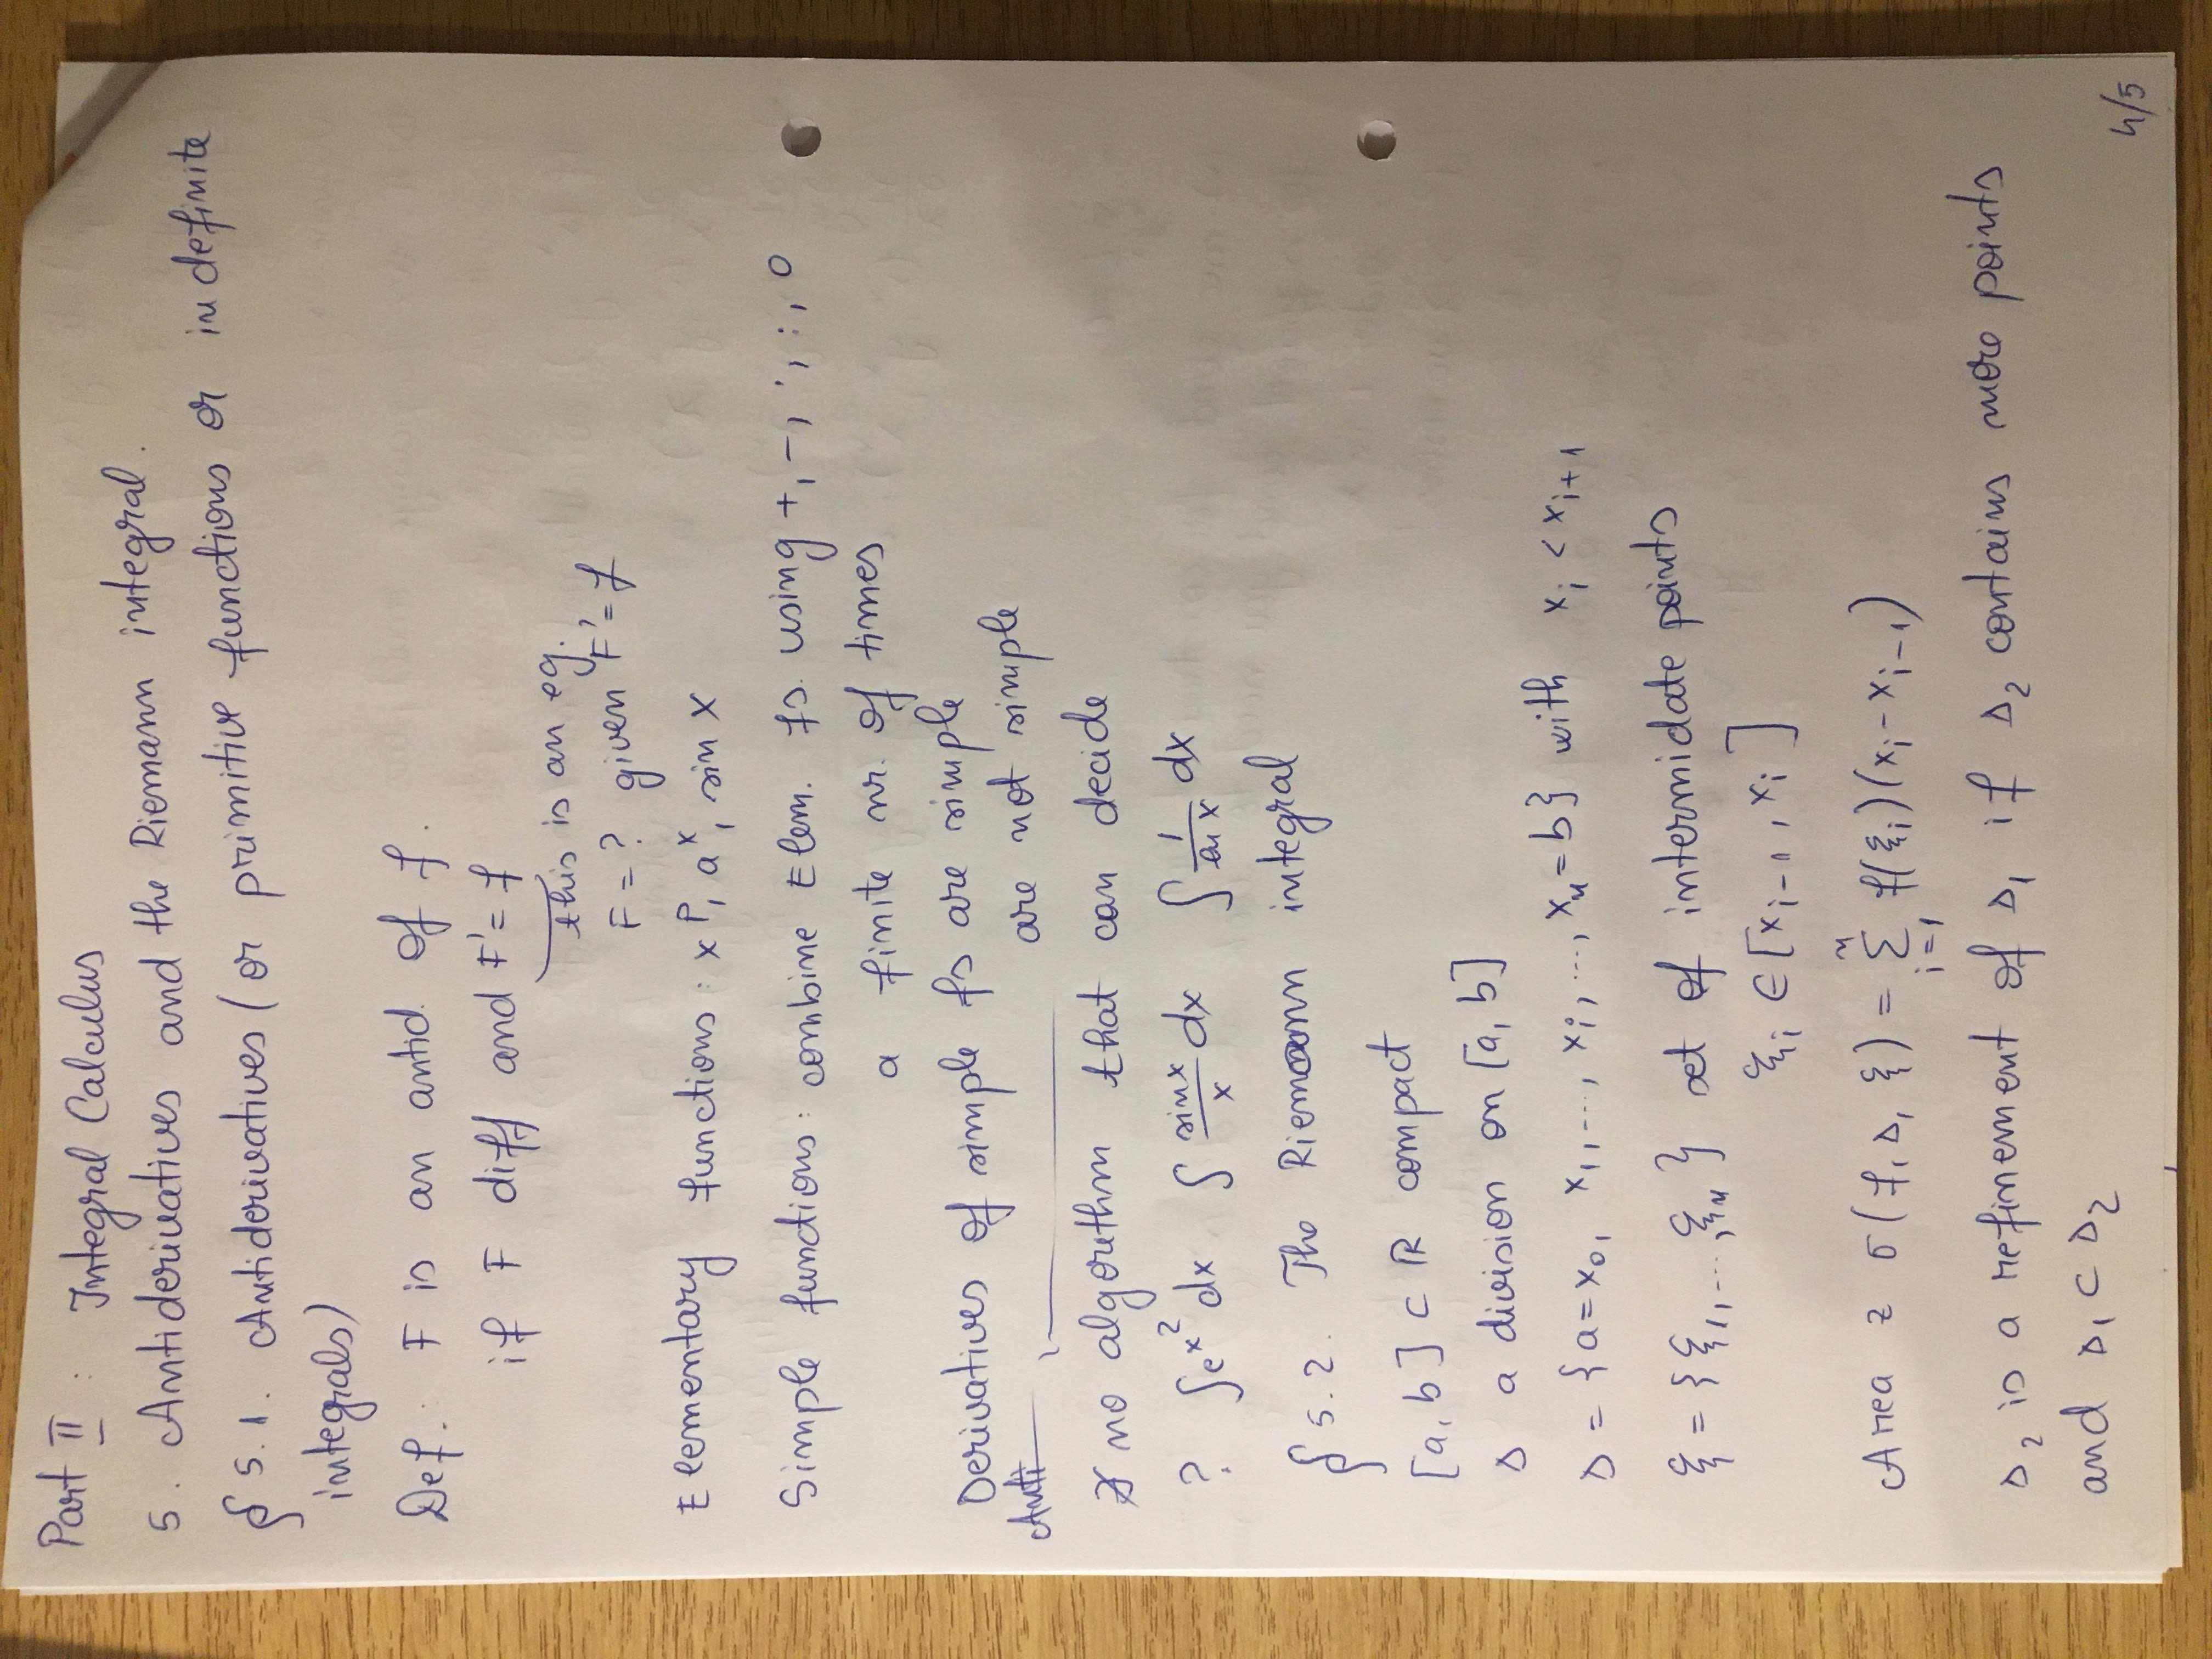 Part II : Integral Calculus
5. Antiderivatives and the Riemann integral.
§ 5.1. Antiderivatives (or primitive functions or indefinite
integrals)
Def.: F is an antid. of f.
if F diff and F' = f
this is an eq.
F = ? given F' = f
Elementary functions: x^p, a^x, sin x
Simple functions: combine Elem. fs. using +, -, ·, :, o
a finite nr. of times
Derivatives of simple fs are simple
Anti ———— are not simple
∄ no algorithm that can decide
? ∫e^x² dx ∫ sinx/x dx ∫ 1/ln x dx
§ 5.2. The Riemann integral
[a, b] ⊂ ℝ compact
Δ a division on [a, b]
Δ = {a = x₀, x₁, ..., xᵢ, ..., xₙ = b} with xᵢ < xᵢ₊₁
ξ = {ξ₁, ..., ξₙ} set of intermidate points
ξᵢ ∈ [xᵢ₋₁, xᵢ]
Area ≈ σ(f, Δ, ξ) = Σ_{i=1}^n f(ξᵢ)(xᵢ - xᵢ₋₁)
Δ₂ is a refinement of Δ₁ if Δ₂ contains more points
and Δ₁ ⊂ Δ₂
4/5